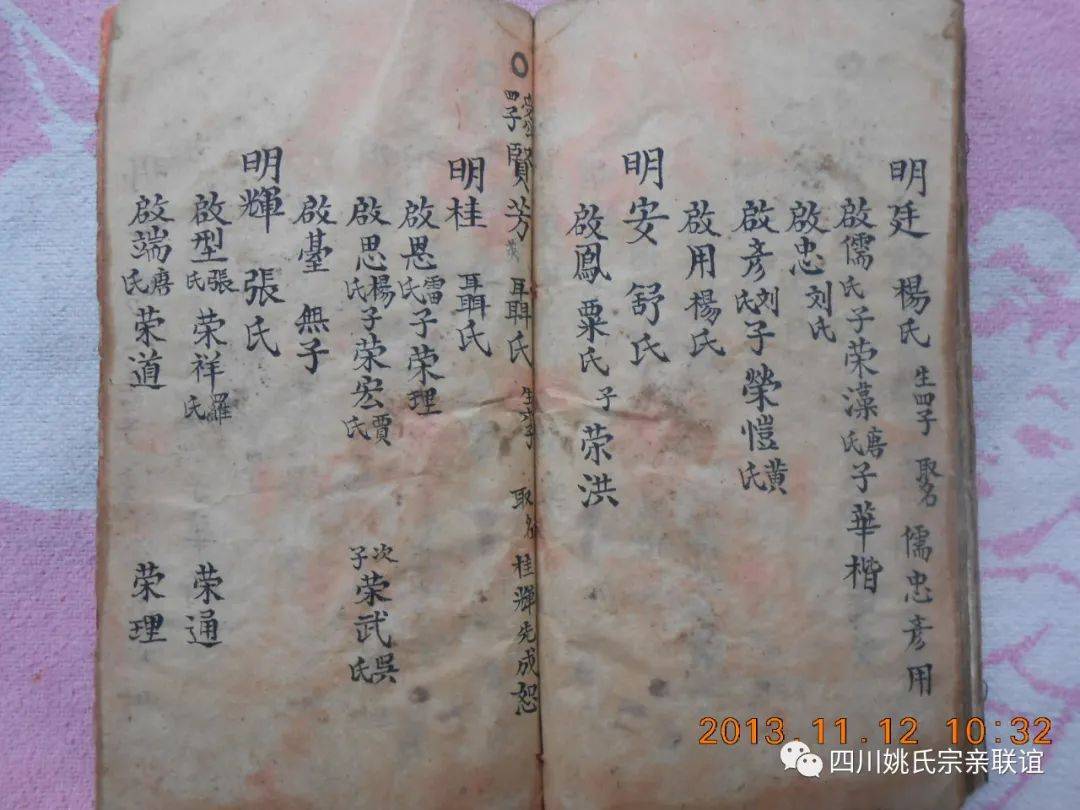 明廷 楊氏 生四子 取名 儒忠彥用
啟儒氏子荣藻唐氏子華楷
啟忠刘氏
啟彥刘氏子榮愷黃氏
啟用楊氏
明安 舒氏
啟鳳粟氏子荣洪
四子賢芳 聶氏 生六子 取名 桂輝先成恕
明桂 聶氏
啟恩雷氏子荣理
啟思楊氏子荣宏賈氏 次子荣武吳氏
啟臺 無子
明輝 張氏
啟型張氏荣祥羅氏 荣通
啟端唐氏荣道 荣理
2013.11.12 10:32
四川姚氏宗亲联谊